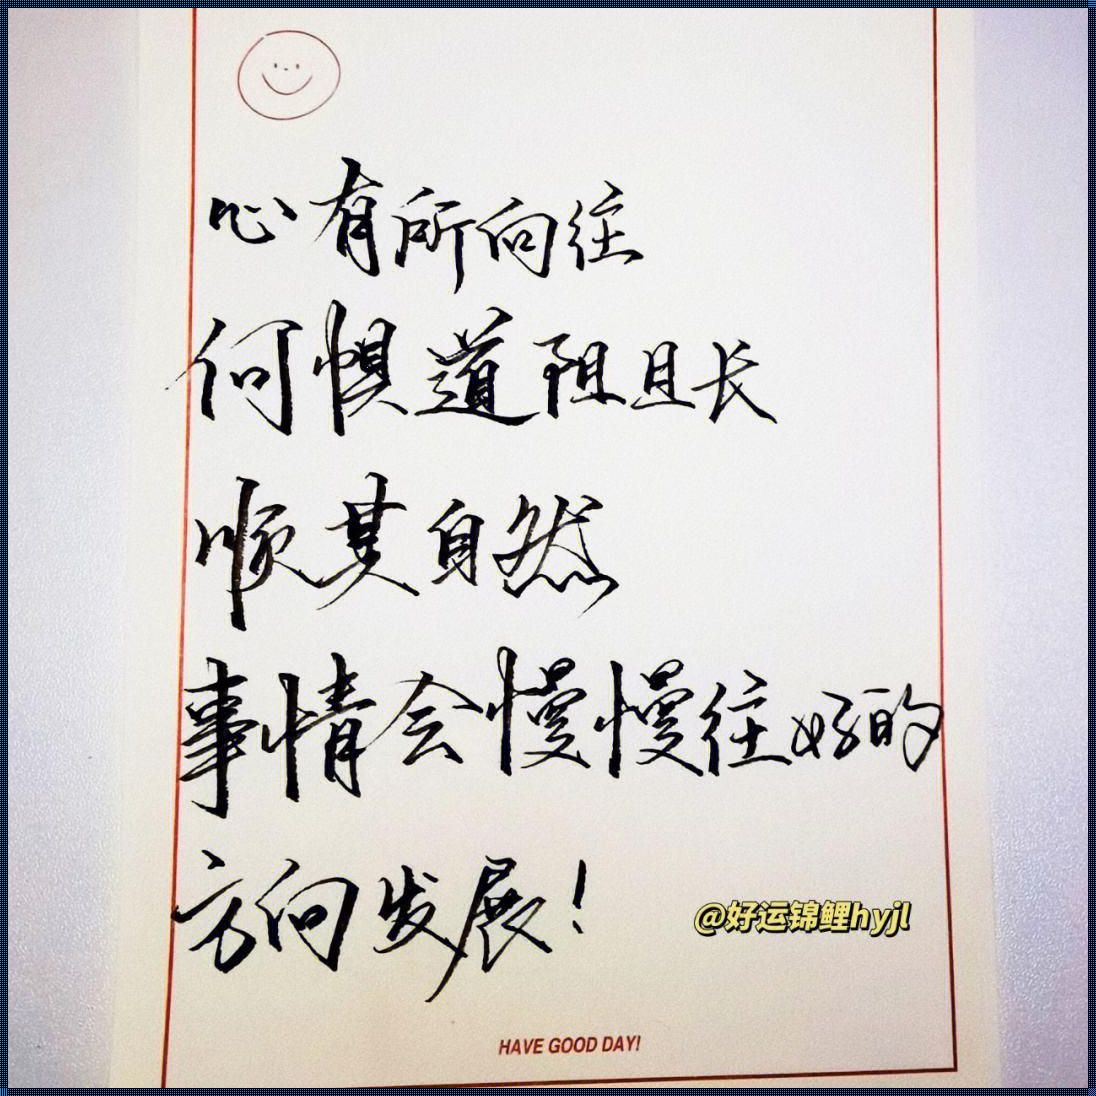 心有所向往
何惧道阻且长
顺其自然
事情会慢慢往好的
方向发展！
@好运锦鲤hyjl
HAVE GOOD DAY!